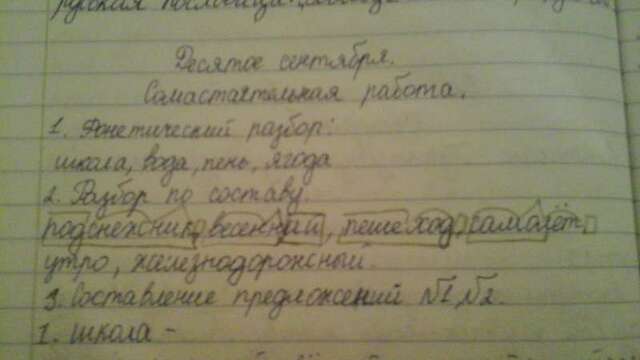 Русская пословица
Десятое сентября.
Самастаятельная работа.
1. Фонетический разбор:
школа, вода, пень, ягода
2. Разбор по составу.
подснежник, весенний, пешеход, самолёт
утро, железнодорожный.
3. Составление предложений №1, №2.
1. школа -